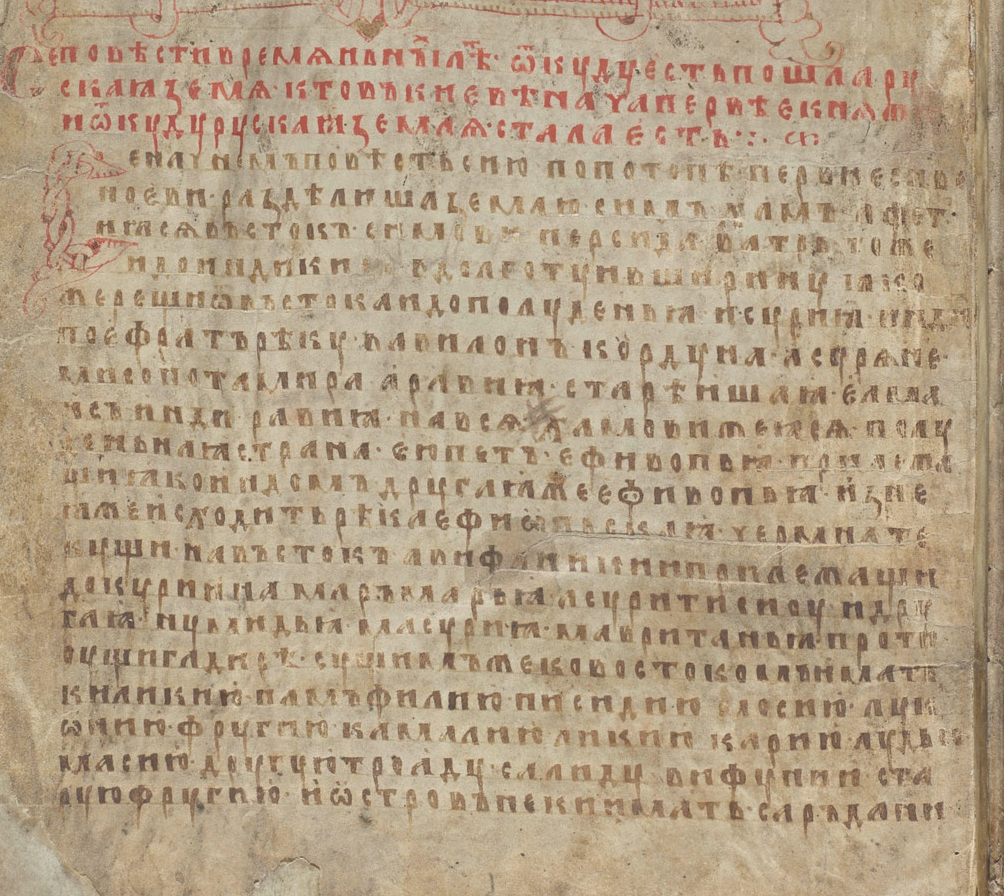 Се повѣсти времяньнъıхъ лѣтъ. ѿкуду есть пошла ру
скаꙗ земя. кто въ киевѣ нача первѣе княж
и ѿкуду рускаꙗ земля стала есть.
Се начнемъ повѣсть сию. по потопѣ. первиє снве
ноеви. раздѣлиша землю. симъ. хамъ. афет.
и ꙗся въстокъ. симови персида. ватрь. тоже
и до индикиꙗ в долготу и в ширину ꙗко
же рещи ѿ въстока и до полуденьꙗ. и суриꙗ. индиа
по ефратъ рѣку. вавилонъ. кордуна. асуряне.
мисопотамира. аравиꙗ. старѣишаꙗ. елма
ис. инди. равиꙗ. на всꙗ
хамови же ꙗся полу
деньнаꙗ страна. еюпетъ. ефивопьꙗ. прилежа
щиꙗ ко индомъ. другаꙗ же ефивопьꙗ. из не
ꙗ же исходить рѣка ефиѡпьскаꙗ. чермна те
кущи на въстокъ. фива. ливи. прилежащи
до куриниꙗ. маръмарьꙗ. асурити. сису. и дру
гаꙗ. нумидьꙗ. масуриꙗ. мавританьꙗ. проти
ву сущи гадирѣ. сущимъ же ко востокомъ имать
киликию. памъфилию. писидию. мосию. лук
ѡнию. фругию. камалию. ликию. карию. лудью
масию. другую троаду. салиду. вифунию. ста
рую фругию. и ѿстровъ неки имать. саръдани